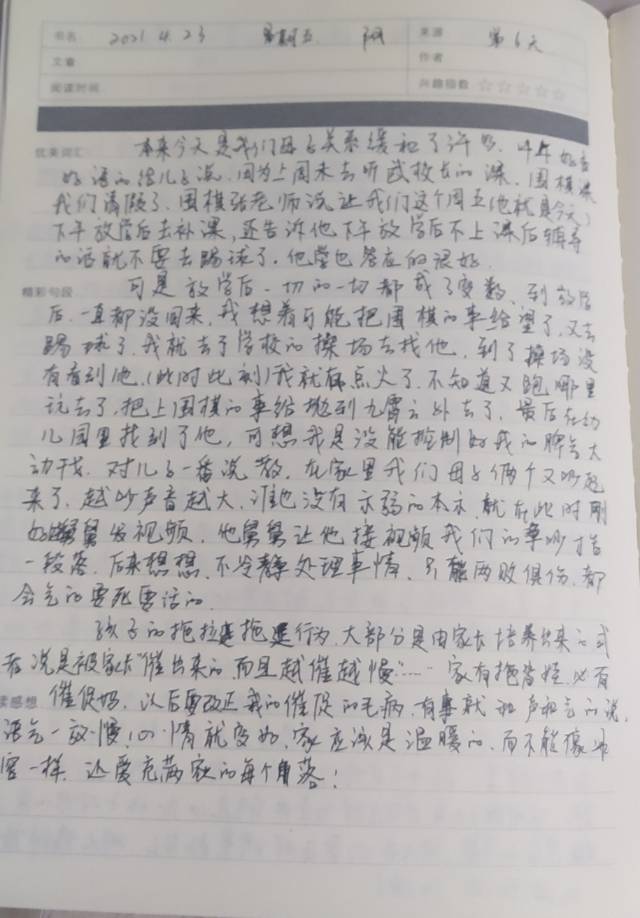 书名 2021 4.23 星期五 阴 来源 第6天
文章 作者
阅读时间 兴趣指数 ☆☆☆☆☆
优美词汇 本来今天是我们母子关系缓和了许多,中午好言
好语的给儿子说,因为上周末去听武校长的课,围棋课
我们请假了,围棋张老师说让我们这个周五(也就是今天)
下午放学后去补课,还告诉他下午放学后不上课后辅导
的话就不要去踢球了,他堂也答应的很好。
精彩句段 可是放学后,一切的一切都成了变数,到放学
后,一直都没回来,我想着可能把围棋的事给望了,又去
踢球了,我就去了学校的操场去找他,到了操场没
有看到他,(此时此刻)我就有点火了,不知道又跑哪里
玩去了,把上围棋的事给抛到九霄云外去了,最后在幼
儿园里找到了他,可想我是没能控制好我的脾气大
动干戈,对儿子一番说教,在家里我们母子俩个又吵起
来了,越吵声音越大,谁也没有示弱的本示,就在此时刚
好舅舅发视频,他舅舅让他接视频我们的争吵告
一段落,后来想想,不冷静处理事情,只能两败俱伤,都
会气的要死要活的。
孩子的拖拉是拖延行为,大部分是由家长培养出来的或
者说是被家长"催出来的,而且越催越慢"……家有拖皆娃,必有
读感想 催促妈,以后要改正我的催促的毛病,有事就和声和气的说,
语气一放慢,心情就变好,家应该是温暖的,而不能像冰
窖一样,让爱充满家的每个角落!